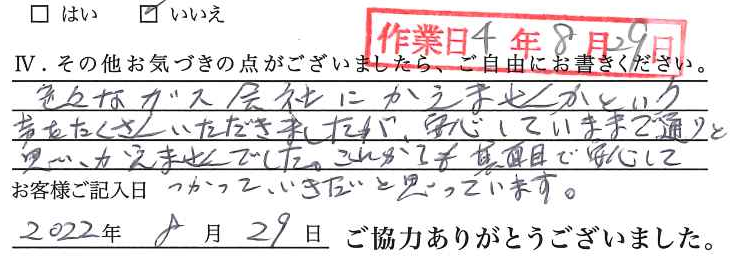 □ はい ☑ いいえ
作業日 4年8月29日
Ⅳ. その他お気づきの点がございましたら、ご自由にお書きください。
色々なガス会社にかえませんかという
声をたくさんいただきましたが、安心していままで通りと
思い、かえませんでした。これからも真面目で安心して
お客様ご記入日 つかって、いきたいと思っています。
2022年 8月 29日 ご協力ありがとうございました。